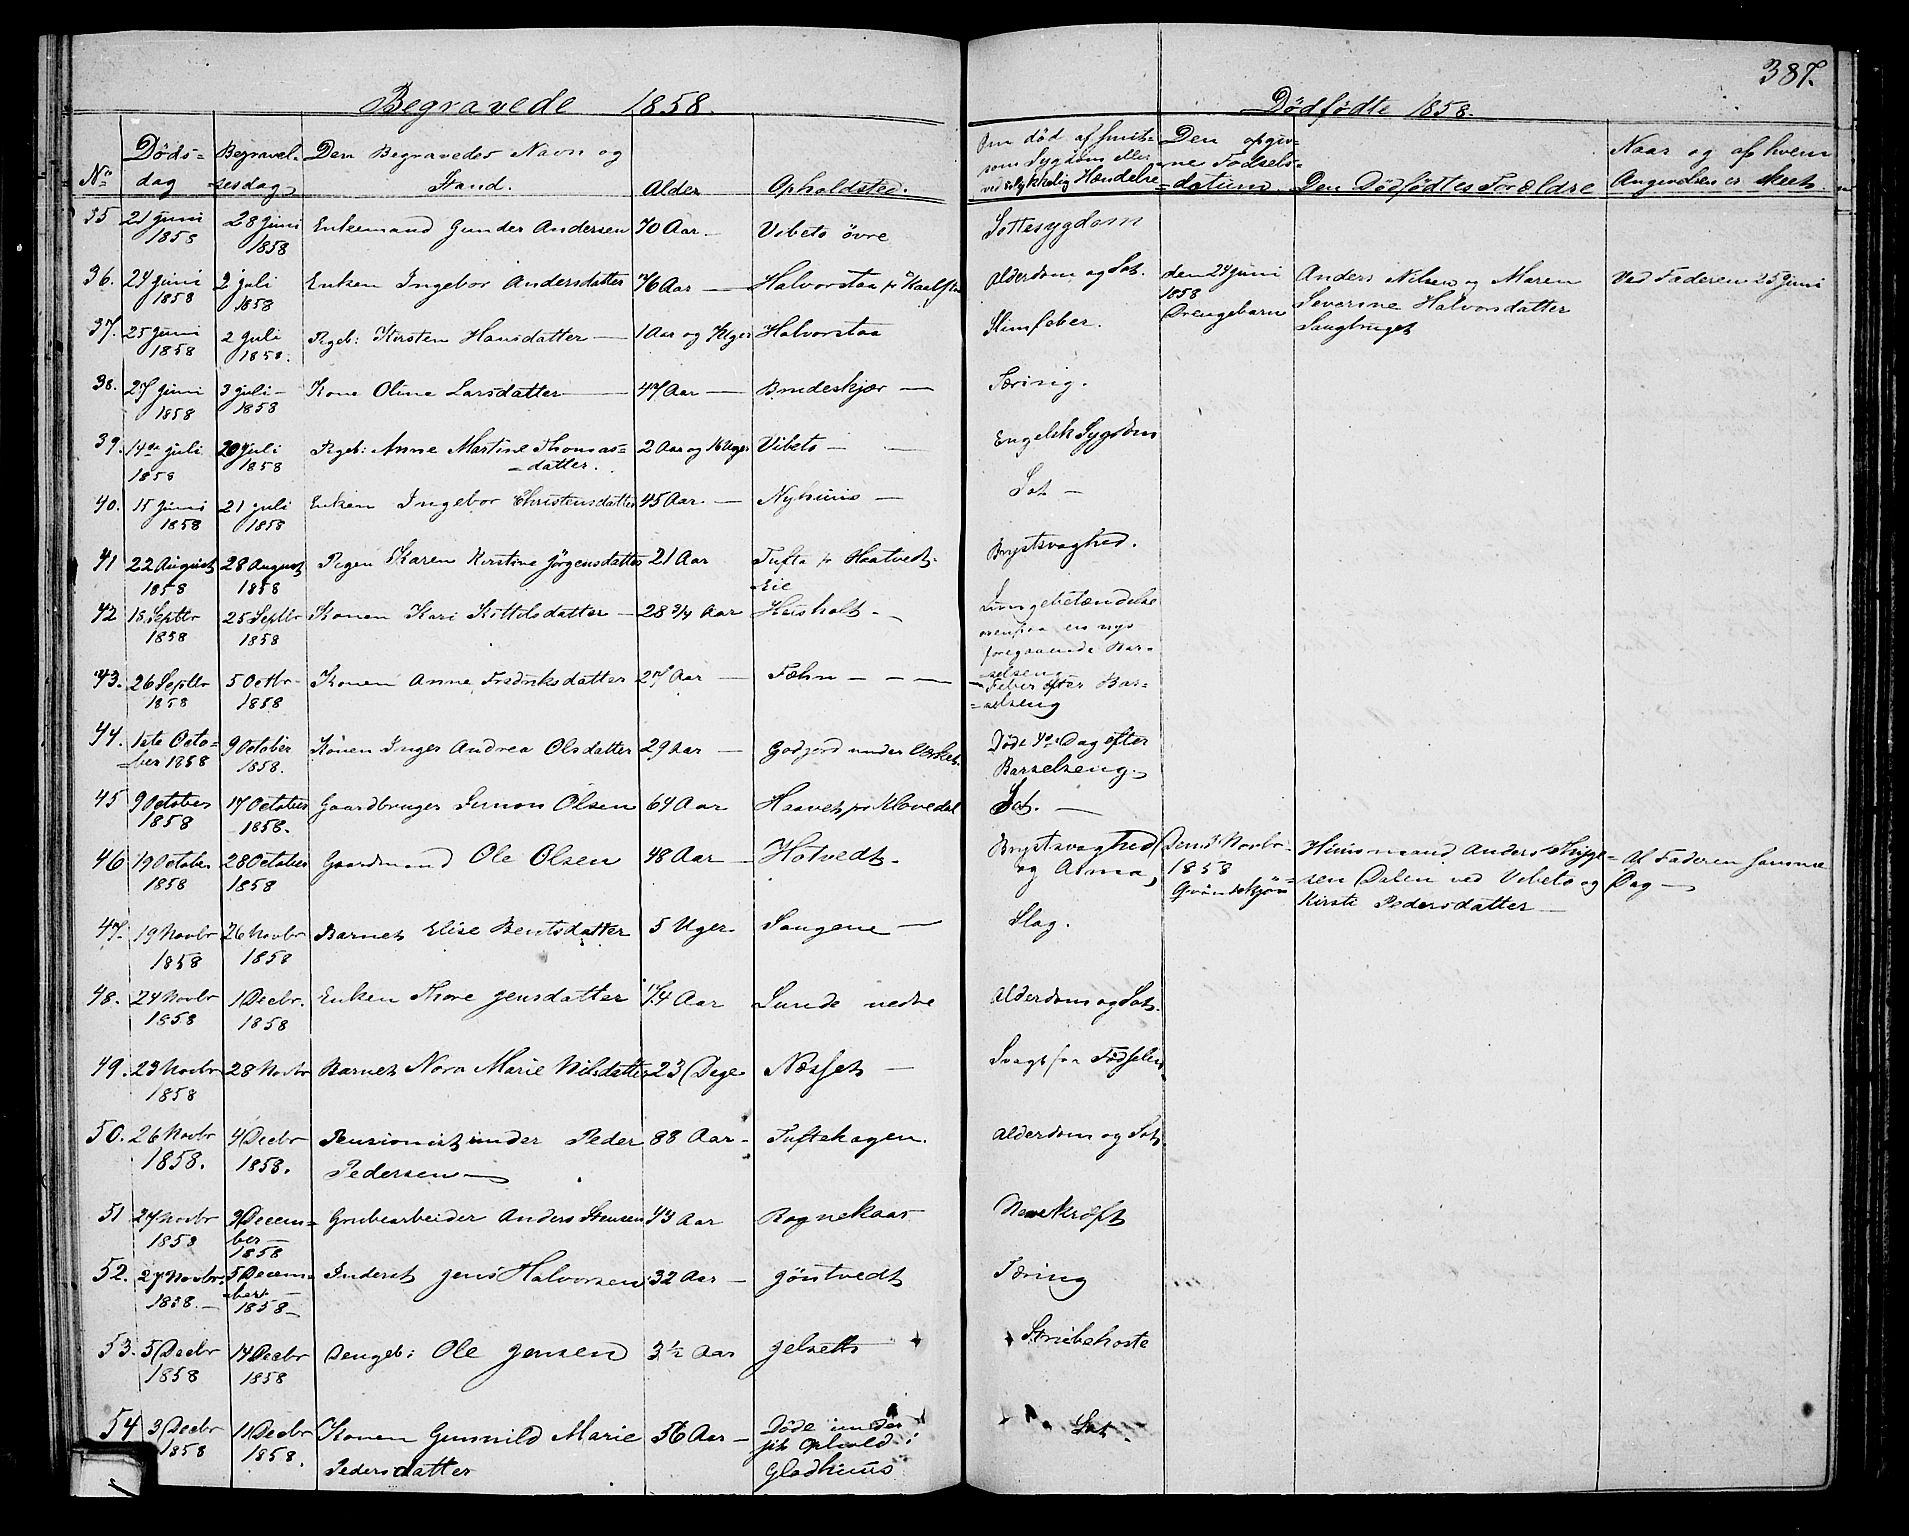 387.
Begravede 1858.
Dödfödte 1858.
No
Döds-
dag
Begravel-
sesdag
Den Begravedes Navn og
Stand.
Alder
Opholdsted.
Om död af smit-
som Sygdom eller
ved ulykkelig Hændelse
Den opgiv-
ne Födsels-
datum
Den Dödfödtes Forældre
Naar og af hvem
Angivelsen er skeet.
35 21 Juni 28 Juni Enkemand Gunder Andersen 70 Aar. — Vibeto övre Sottesygdom
1858 1858
36. 24 Juni 2 Juli Enken Ingebor Andersdatter 76 Aar — Halvorstaa Alderdom og Sot. den 24 Juni Anders Nilsen og Maren Ved Faderen 25 Juni
1858 1858 1858 Severine Halvorsdatter
Drengebarn Saugbruget
37. 25 Juni 2 Juli Pigeb: Kirsten Hansdatter — 1 Aar og Uger Halvorstaa Slimfeber.
1858 1858.
38. 27 Juni 3 Juli — Kone Oline Larsdatter — 47 Aar — Brudeskjær — Tæring.
1858 1858
39. 14de Juli 20 Juli Pigeb: Anne Martine Thomas- 2 Aar og 16 Uger Vibeto — Engelsk Sygdom
1858 1858 =datter.
40. 15 Juni 21 Juli Enken Ingebor Christensdatter 45 Aar — Nyhuus — Sot —
1858 1858
41 22 August 28 August Pigen Karen Kirstine Jörgensdatter 21 Aar Tufte Haatvedt Brystsvaghed.
1858 1858 Eie
42 18 Septbr 25 Septbr Konen Kari Kittelsdatter — 28 3/4 Aar Heisholt — Lungebetændelse
1858 1858 ovenpaa en nys
foregaaende Bar-
selseng
43. 26 Septbr 5 Octbr Konen Anne Fredriksdatter 27 Aar — Fæhn — — — Feber efter Bar-
1858 1858 =selseng
44. 1ste Octo- 9 October Konen Inger Andrea Olsdatter 29 Aar — Godjord under Værket. Döde 4de Dag efter
ber 1858 1858. Barselseng.
45 9 October 17 October Gaardbruger Simon Olsen 64 Aar Sot. —
1858 1858.
46 19 October 28 October Gaardmand Ole Olsen 48 Aar — Hotvedt — Brystsvaghed Novbr Huusmand Anders Af Faderen samme
1858 1858 og 1858 sen Dalen ved Vibeto og Dag —
Kirsti Pedersdatter —
47. 19 Novbr 26 Novbr Barnet Elise Bentsdatter 5 Uger Saugene — Slag.
1858 1858
48. 24 Novbr 1 Decbr. Enken Thore Jensdatter 74 Aar Lunde nedre Alderdom og Sot.
1858 1858
49. 23 Novbr 28 Novbr Barnet Nora Marie Nilsdatter 23 Dage Næsset — Svag fra Födselen
1858
50. 26 Novbr 4 Decbr Pensionist under Peder 88 Aar — Tuftehagen. Alderdom og Sot
1858. 1858. Pedersen —
51 27 Novbr 3 Decem- Grubearbeider Anders Stensen 43 Aar Rognekaas
1858 ber —
1858
52. 27 Novbr 5 Decem- Inderst Jens Halvorsen 32 Aar — Jöntvedt Tæring
1858. — ber
1858 —
53. 5 Decbr 14 Decbr Drengeb: Ole Jensen 3 1/2 Aar Jelsett Strubehoste
1858 1858
54 3 Decbr 11 Decbr Konen Gunnild Marie 56 Aar — Döde under Sot.
1858 1858. Pedersdatter sit Ophold i
Gladhuus